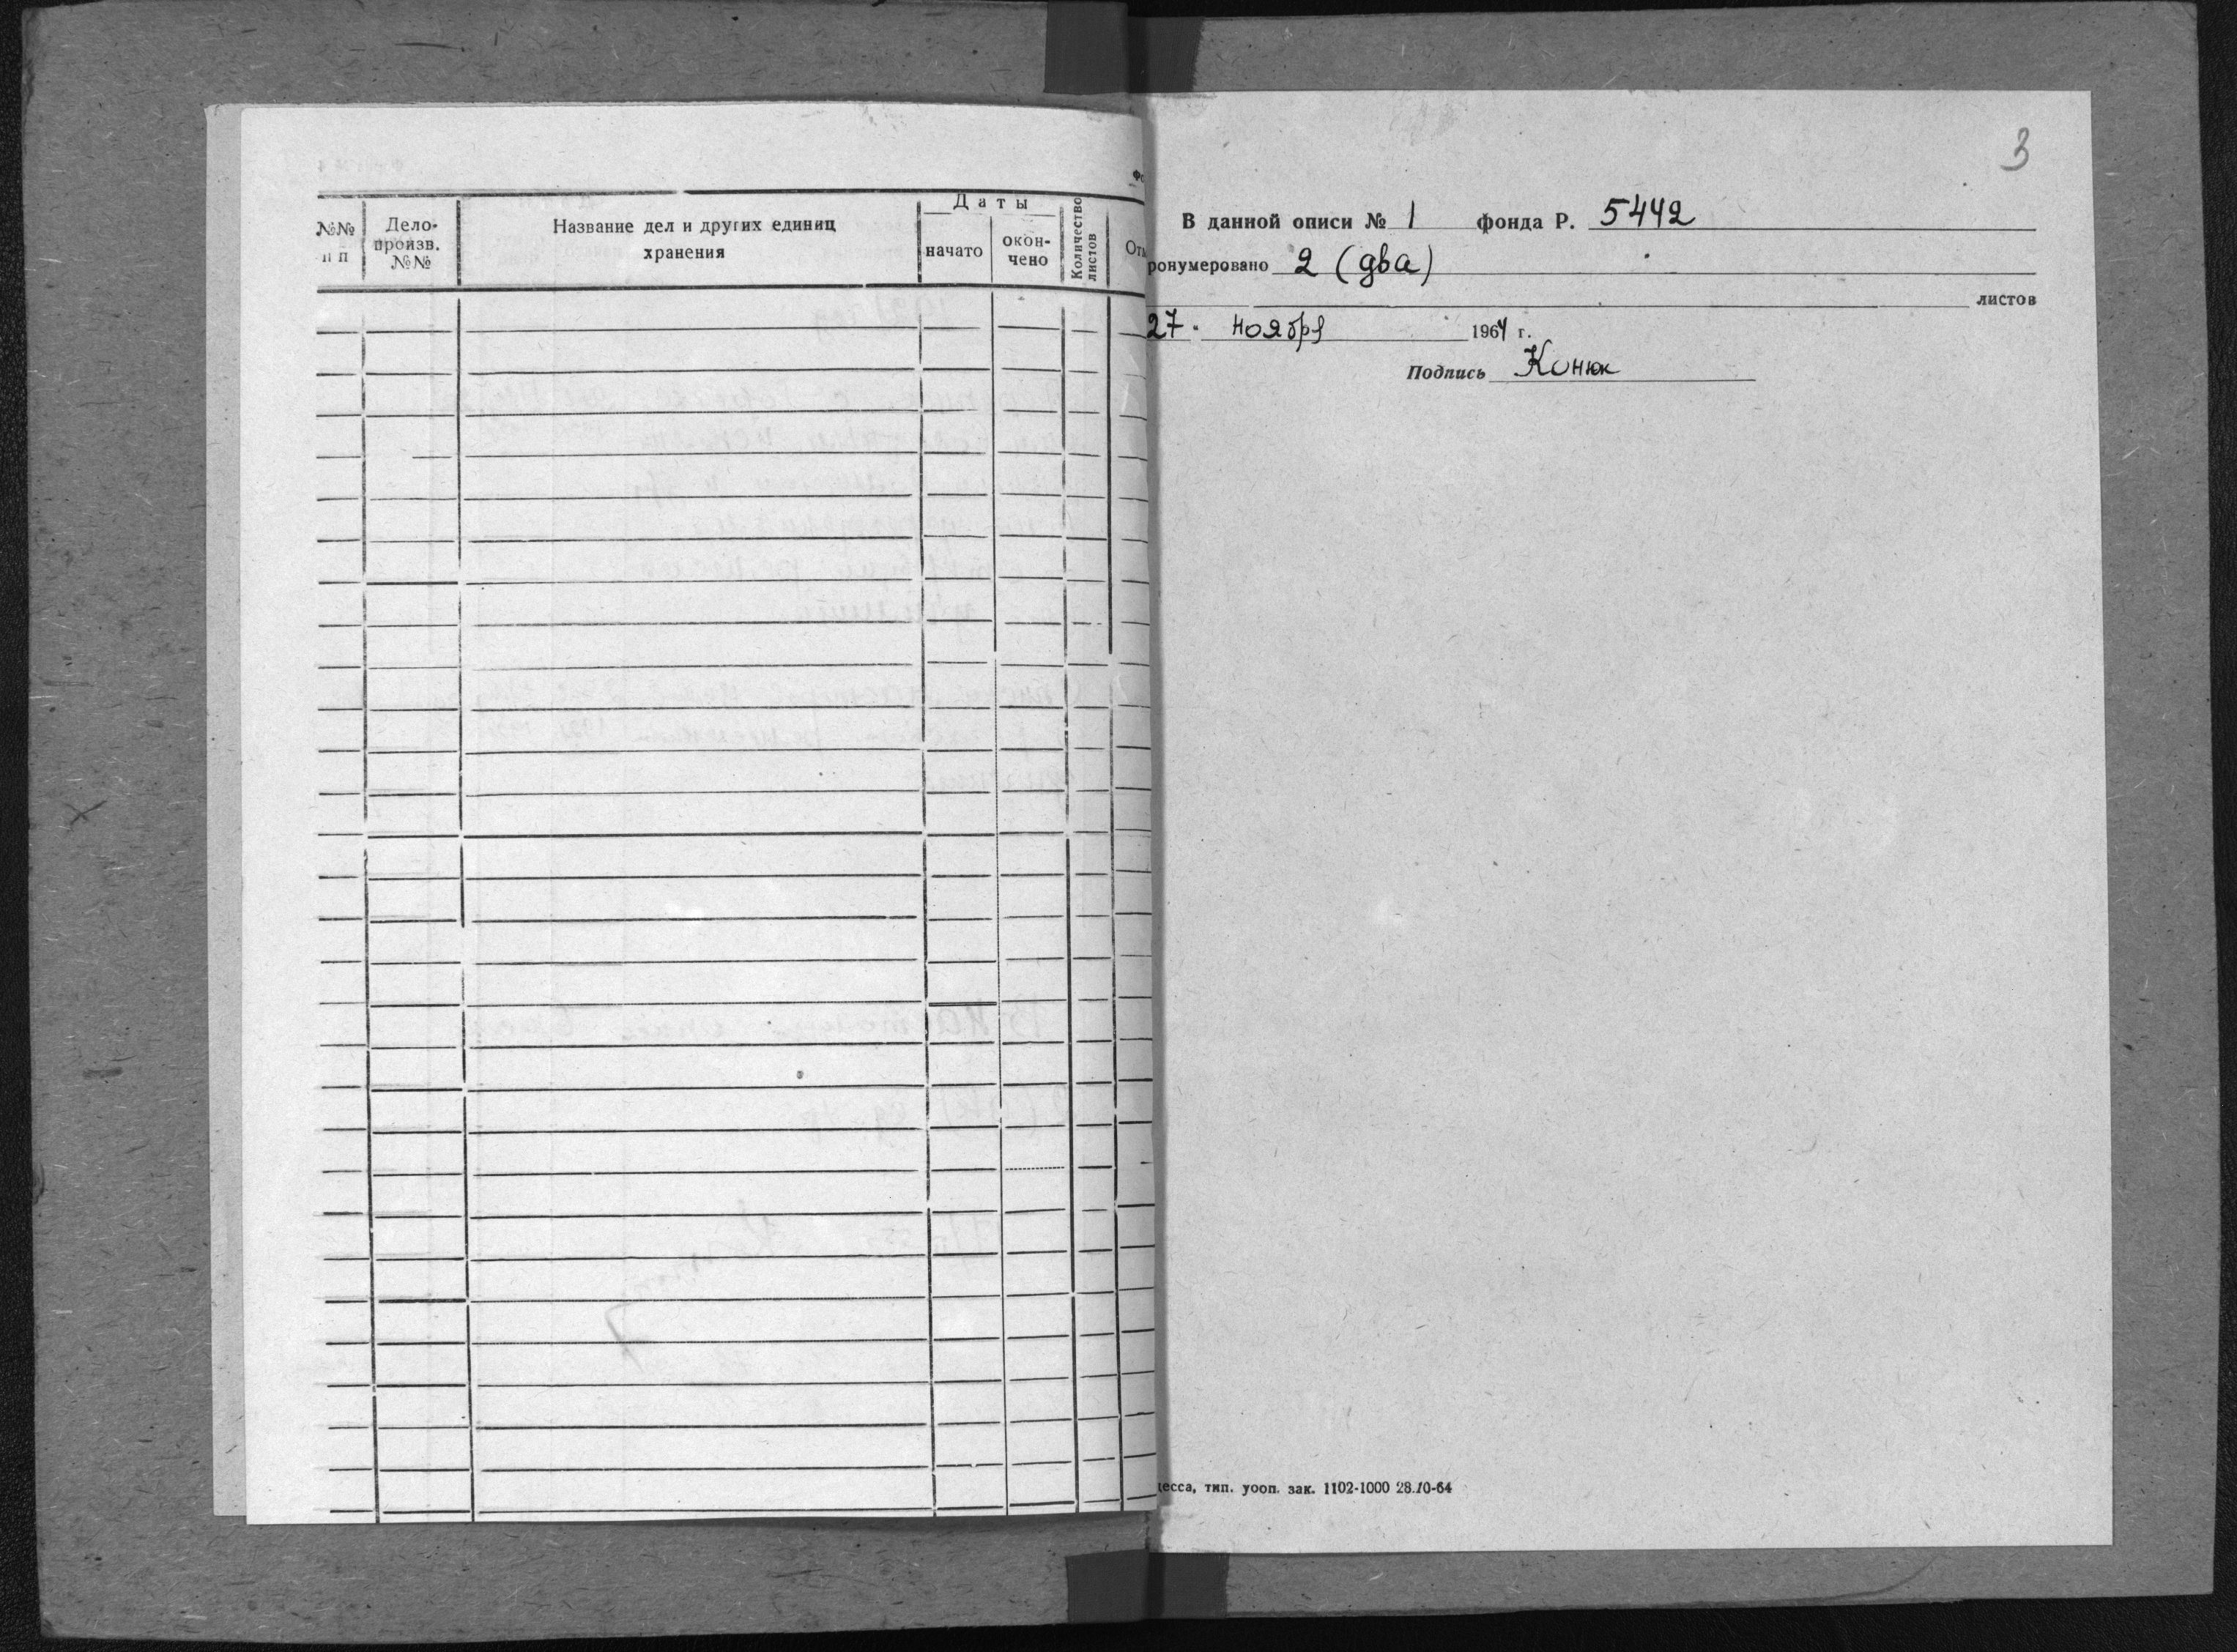 №№ п п
Дело-
произв.
№№
Название дел и других единиц
хранения
Даты
начато
окон-
чено
Количество
листов
3
В данной описи № 1 фонда Р. 5442
ронумеровано 2 (два)
листов
27 ноября 1964 г.
Подпись Конюк
десса, тип. уооп. зак. 1102-1000 28.10-64